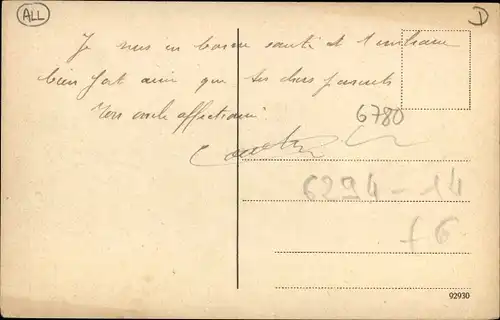 ALL
Je suis en bonne santé et t'embrasse
bien fort ainsi que tes chers parents
Ton oncle affectionné
6780
6294-14
f 6
92930